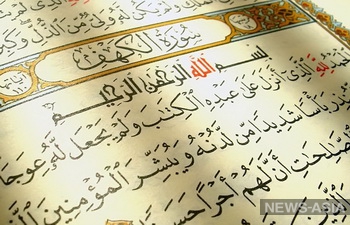 وَلِىٌّ مِّنَ ٱلذُّلِّ
سُورَةُ ٱلْكَهْفِ
بِسْمِ ٱللَّهِ ٱلرَّحْمَٰنِ ٱلرَّحِيمِ
لِلَّهِ ٱلَّذِىٓ أَنزَلَ عَلَىٰ عَبْدِهِ ٱلْكِتَٰبَ وَلَمْ يَجْعَل لَّهُۥ عِوَجَا
بَأْسًا شَدِيدًا مِّن لَّدُنْهُ وَيُبَشِّرَ ٱلْمُؤْمِنِينَ
أَنَّ لَهُمْ أَجْرًا حَسَنًا
NEWS-ASIA